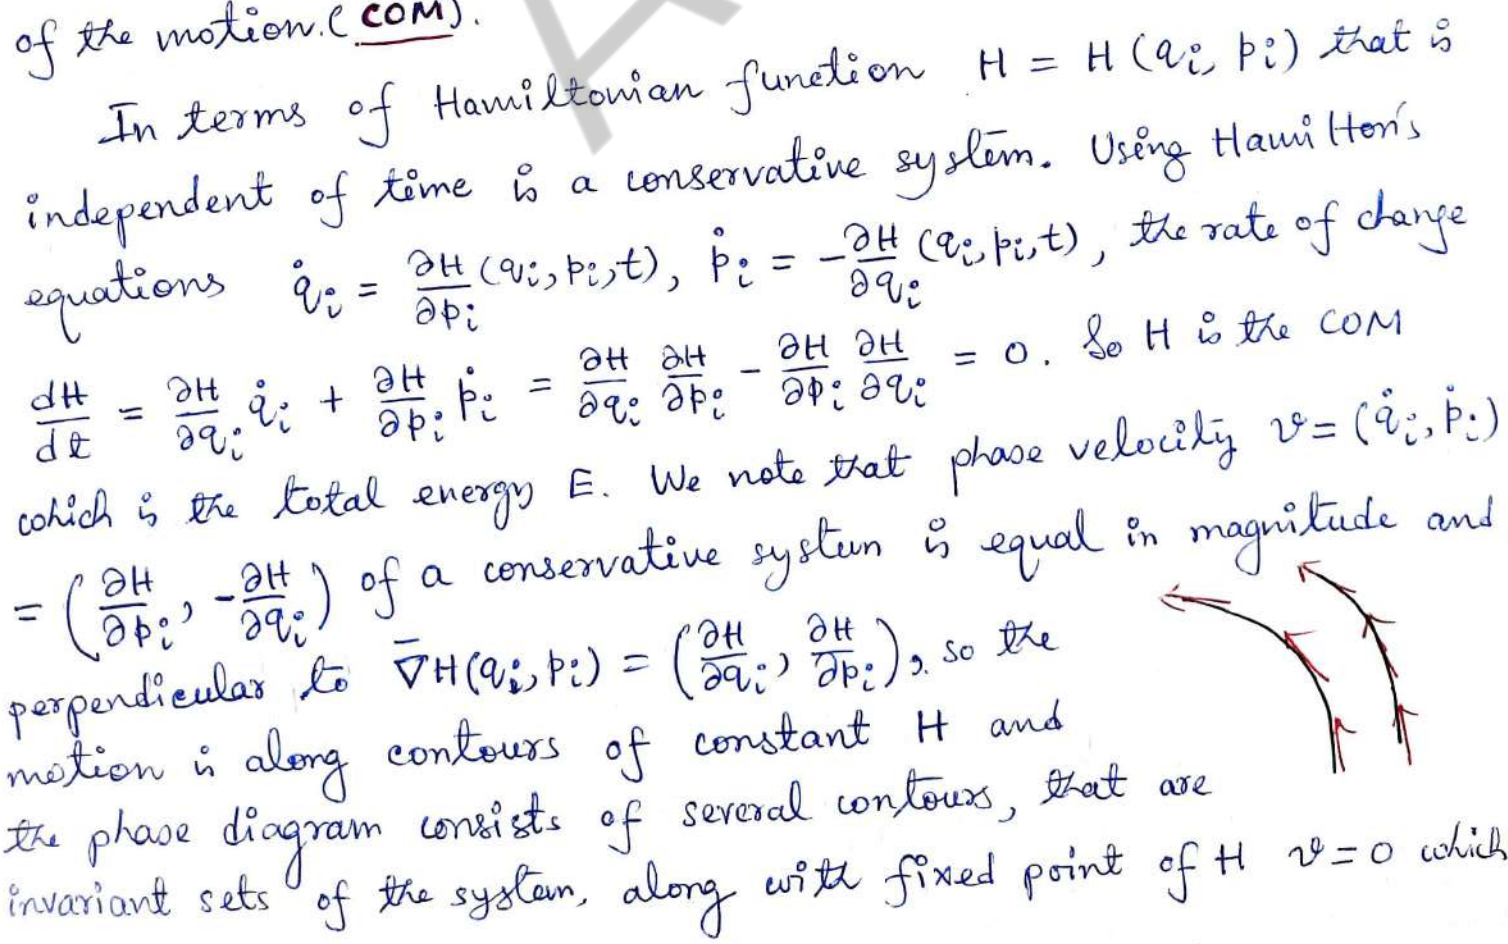 of the motion. (COM).
In terms of Hamiltonian function H = H(qᵢ, pᵢ) that is
independent of time is a conservative system. Using Hamilton's
equations q̇ᵢ = ∂H/∂pᵢ (qᵢ, pᵢ, t), ṗᵢ = -∂H/∂qᵢ (qᵢ, pᵢ, t), the rate of change
dH/dt = ∂H/∂qᵢ q̇ᵢ + ∂H/∂pᵢ ṗᵢ = ∂H/∂qᵢ ∂H/∂pᵢ - ∂H/∂pᵢ ∂H/∂qᵢ = 0. So H is the COM
which is the total energy E. We note that phase velocity v = (q̇ᵢ, ṗᵢ)
= (∂H/∂pᵢ, -∂H/∂qᵢ) of a conservative system is equal in magnitude and
perpendicular to ∇̄H(qᵢ, pᵢ) = (∂H/∂qᵢ, ∂H/∂pᵢ), so the
motion is along contours of constant H and
the phase diagram consists of several contours, that are
invariant sets of the system, along with fixed point of H v = 0 which